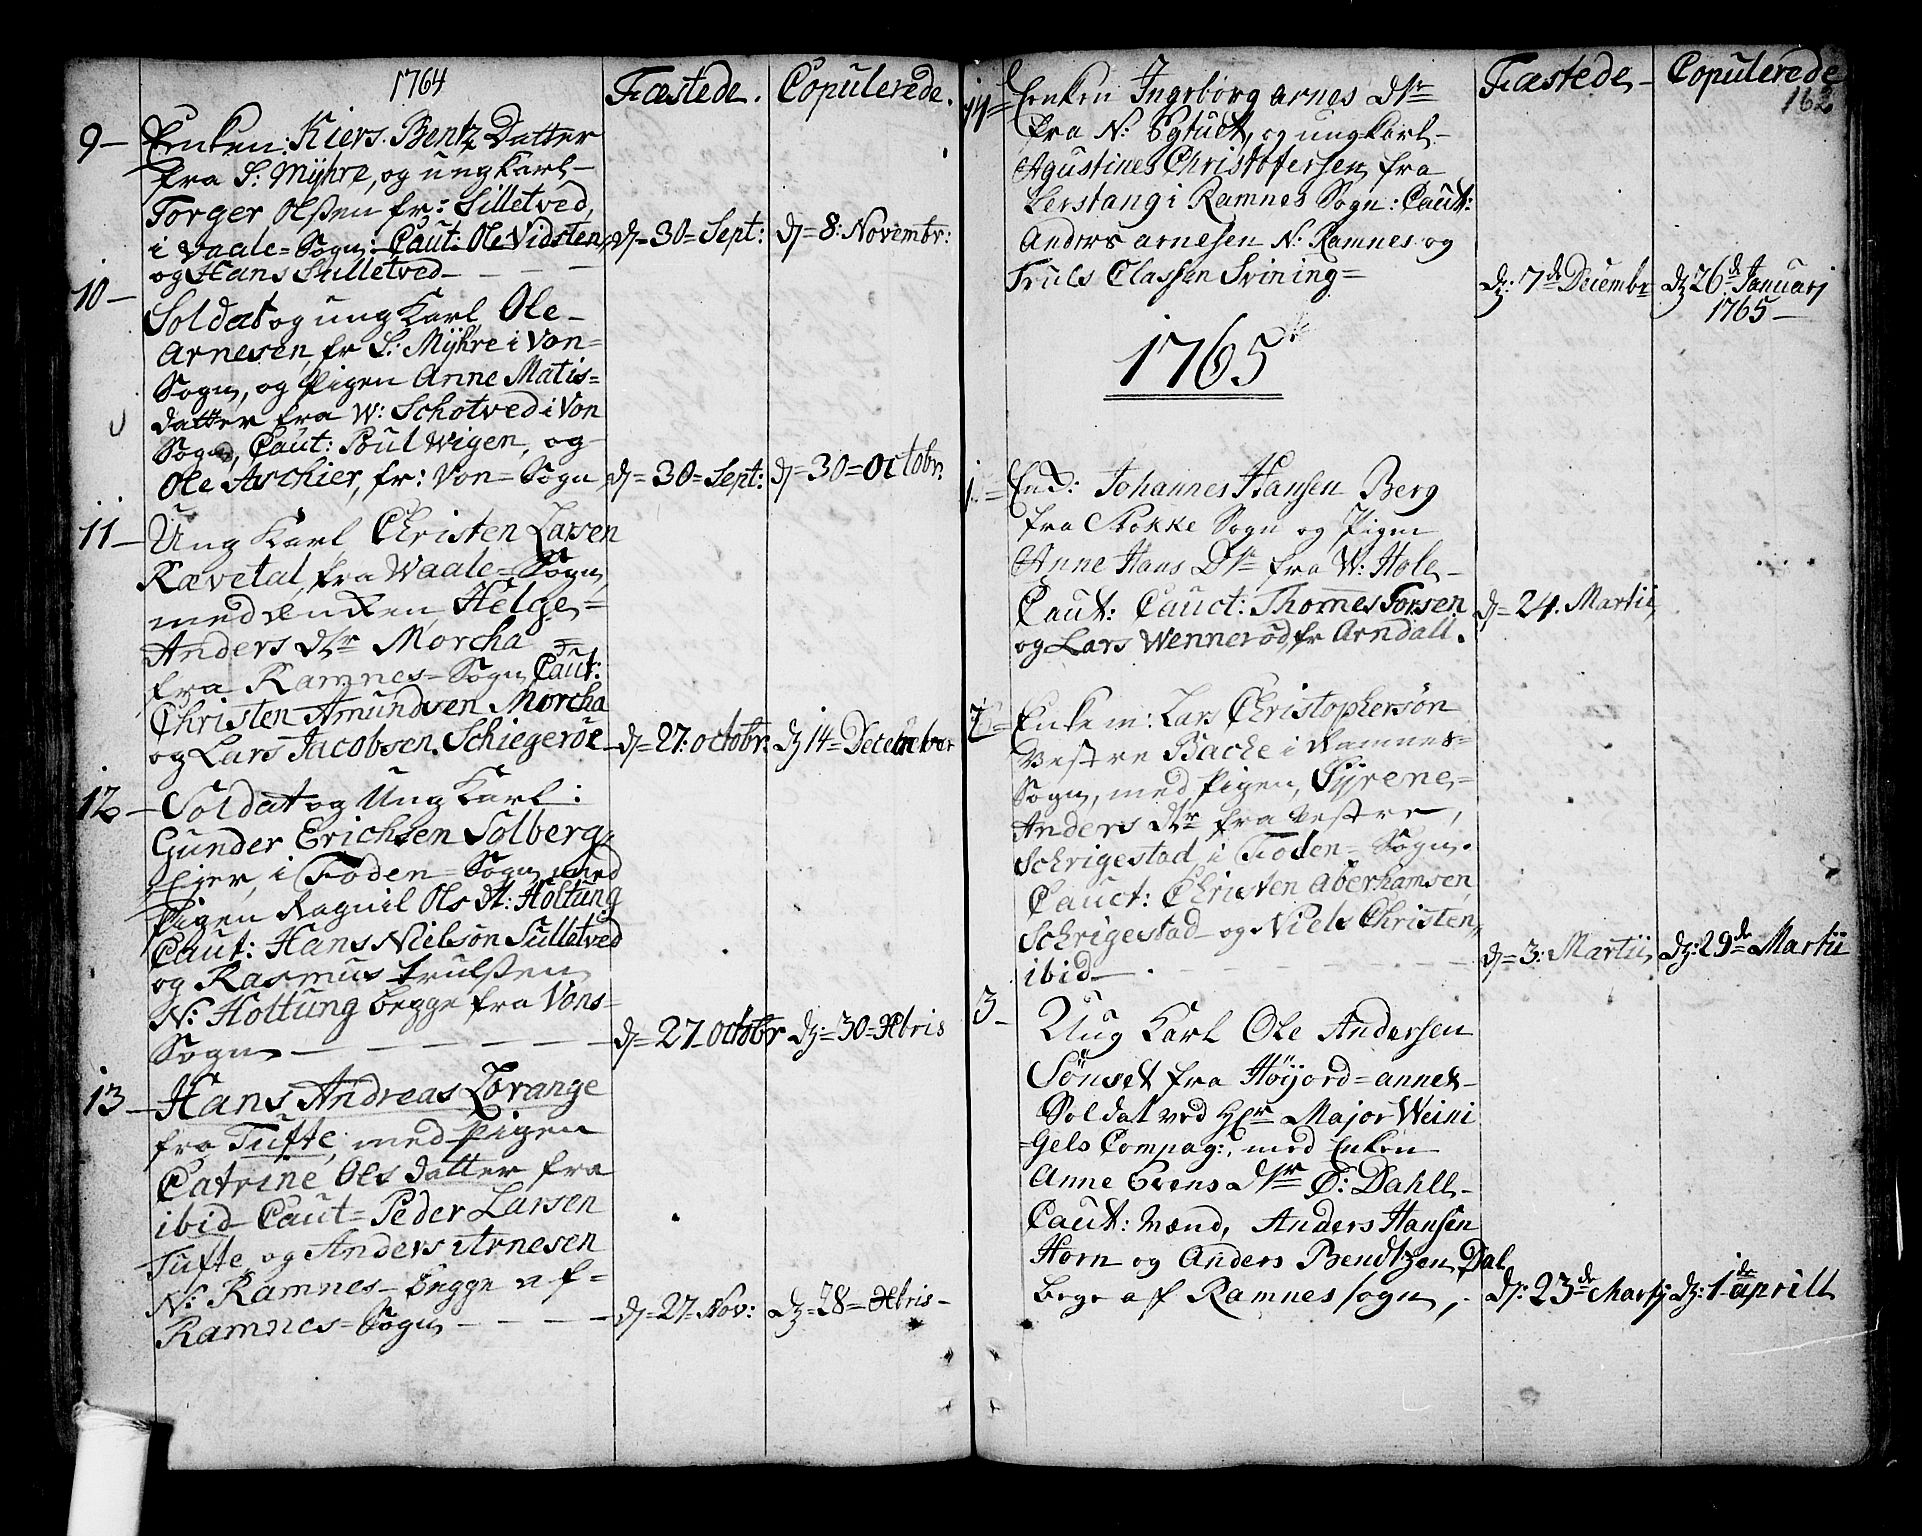 1764
Fæstede. Copulerede.
9- Enken: Kiers. Bentz Datter
fra S: Myhre, og ungKarl-
Torger Olsen fr: Silletved,
i Vaale=Sogn: Caut: Ole Vidsten, d= 30=Sept: d= 8: Novembr:
og Hans Sulletved
10- Soldat og ung Karl Ole-
Arnesen, fr S: Myhre i Von=
Sogn, og Pigen Anne Matis=
datter fra W: Schotved i Von
Sogn, Caut: Poul Wigen, og-
Ole Aschier, fr: Von=Sogn, d= 30=Sept: d= 30=Octobr.
11- Ung Karl, Christen Larsen
Rævetal, fra Waale=Sogn,
med Enken, Helge=
Anders Dtr Morcha =
fra Ramnes=Sogn, Caut:
Christen Amundsen Morcha
og Lars Jacobsen. Schiegerøe- d= 27: octobr. d 14=December
12- Soldat og Ung Karl:
Gunder Erichsen Solberg,
Ejer, i Foden=Sogn, med
Pigen Ragnil Ols Dt: Holtung
Caut: Hans Nielsøn Sulletved
og Rasmus Trulsen
N: Holtung begge fra Vons=
Sogn d= 27 octobr d: 30=Xbris
13- Hans Andreas Lorange
fra Tufte, med Pigen
Catrine Ols datter fra
ibid- Caut= Peder Larsen
Tufte, og Anders Arnesen
N: Ramnes- begge af=
Ramnes=Sogn d= 27. Nov: d= 28=Xbris-
Fæstede- Copulerede
162
14= Enken Ingeborg Arnes Dtr
fra N: Bytuet, og ungKarl-
Agustines Christofersen, fra
Lerstang i Ramnes Sogn: Caut:
Anders Arnesen N: Ramnes og
Truls Classen Svining= d: 7de Decembr d 26de Januarj
1765-
1765
1.= End: Johannes Hansen Berg
fra Stokke Sogn og Pigen
Anne Hans Dtr fra W: Hole-
Caut: Cauct: Thomes Torsen d= 24. Martii,
og Lars Wennerød fr Arndall.
2= Enkem: Lars Christophersøn
Vestre Backe i Ramnes=
Sogn, med Pigen, Syrene=
Anders Dtr fra Vestre,
Schrigestad i Foden=Sogn.
Cauct: Christen Aberhamsen,
Schrigestad- og Niels Christen,
ibid- d= 3: Martii, d: 29de Martii
3- Ung Karl Ole Andersen
Sønset fra Høijord=annex-
Soldat ved Hr Major Weini
=gels Compag:, med Enken
Anne Evens Dtr Ø: Dahll-
Caut: Mænd, Anders Hansen
Horn og Anders Bendtzen Dal,
bege af Ramnes sogn, d: 23de Martij d: 1de aprill